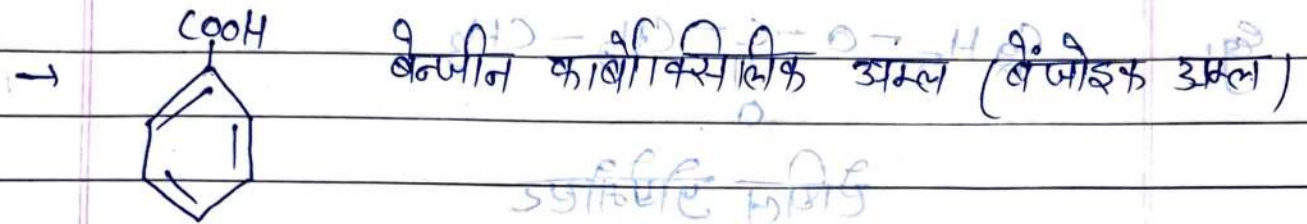 COOH
→ बेन्जीन कार्बोक्सिलिक अम्ल (बेंजोइक अम्ल)